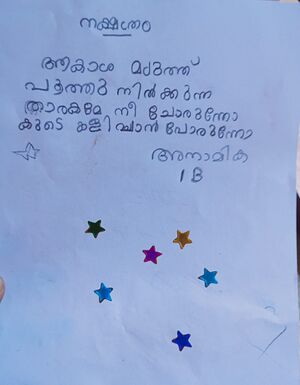 നക്ഷത്രം
ആകാശ മറ്റത്ത്
പൂത്തു നിൽക്കുന്ന
താരകമേ നീ ചോരുന്നോ
കൂടെ കളിയ്ക്കാൻ പോരുന്നോ
അനാമിക
1 B